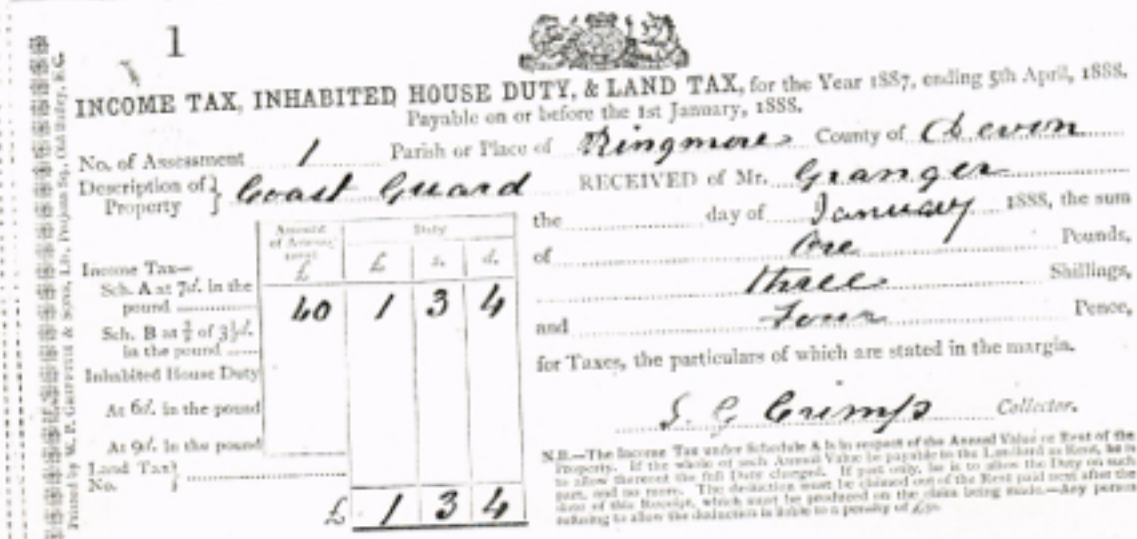 1
INCOME TAX, INHABITED HOUSE DUTY, & LAND TAX, for the Year 1887, ending 5th April, 1888.
Payable on or before the 1st January, 1888.
No. of Assessment 1 Parish or Place of Ringmore County of Devon
Description of Property } Coast Guard RECEIVED of Mr. Granger
the day of January 1888, the sum
of One Pounds,
Three Shillings,
and Four Pence,
for Taxes, the particulars of which are stated in the margin.
S. G Crimp Collector.
Amount of Annual Duty
£ £ s. d.
Income Tax—
Sch. A at 7d. in the pound 40 1 3 4
Sch. B at of 3½d. in the pound
Inhabited House Duty
At 6d. in the pound
At 9d. in the pound
Land Tax }
No.
£ 1 3 4
N.B.—The Income Tax under Schedule A is in respect of the Annual Value or Rent of the
Property. If the whole of such Annual Value be payable to the Landlord as Rent, he is
to allow thereout the full Duty charged. If part only, he is to allow the Duty on such
part, and no more. The deduction must be claimed out of the Rent paid next after the
date of this Receipt, which must be produced on the claim being made.—Any person
refusing to allow the deduction is liable to a penalty of £50.
Printed by W. P. GRIFFITH & SONS, LD., Prujean Sq., Old Bailey, E.C.